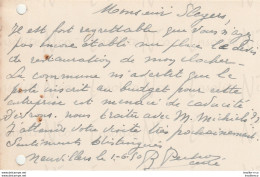 Monsieur Slegers,
Il est fort regrettable que vous n'ayez
pas encore établi sur place le devis
de restauration de mon clocher.
La commune m'avertit que le
poste inscrit au budget pour cette
entreprise est menacé de caducité
Devrons-nous traiter avec M. Michiels ?
J'attends votre visite très prochainement.
Sentiments distingués
Neuvillers le
curé